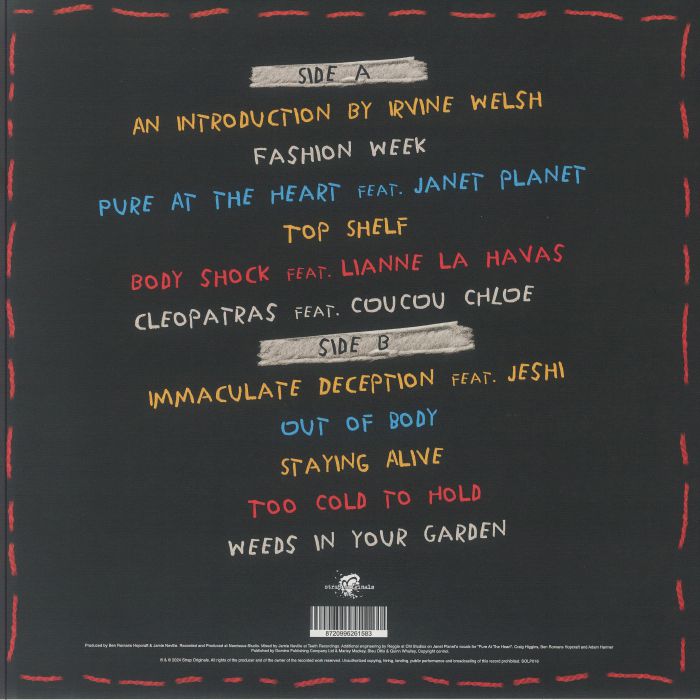 SIDE A
AN INTRODUCTION BY IRVINE WELSH
FASHION WEEK
PURE AT THE HEART FEAT. JANET PLANET
TOP SHELF
BODY SHOCK FEAT. LIANNE LA HAVAS
CLEOPATRAS FEAT. COUCOU CHLOE
SIDE B
IMMACULATE DECEPTION FEAT. JESHI
OUT OF BODY
STAYING ALIVE
TOO COLD TO HOLD
WEEDS IN YOUR GARDEN
strap originals
8720996261583
Produced by Ben Romans Hopcraft & Jamie Neville. Recorded and Produced at Narcissus Studio. Mixed by Jamie Neville at Teeth Recordings. Additional engineering by Reggie at Old Studios on Janet Planet's vocals for "Pure At The Heart". Craig Higgins, Ben Romans Hopcraft and Adam Harmer
Published by Domino Publishing Company Ltd & Marley Mackey, Blau Ollo & Quinn Whalley, Copyright control.
℗ & © 2024 Strap Originals. All rights of the producer and of the owner of the recorded work reserved. Unauthorised copying, hiring, lending, public performance and broadcasting of this record prohibited. SOLP018